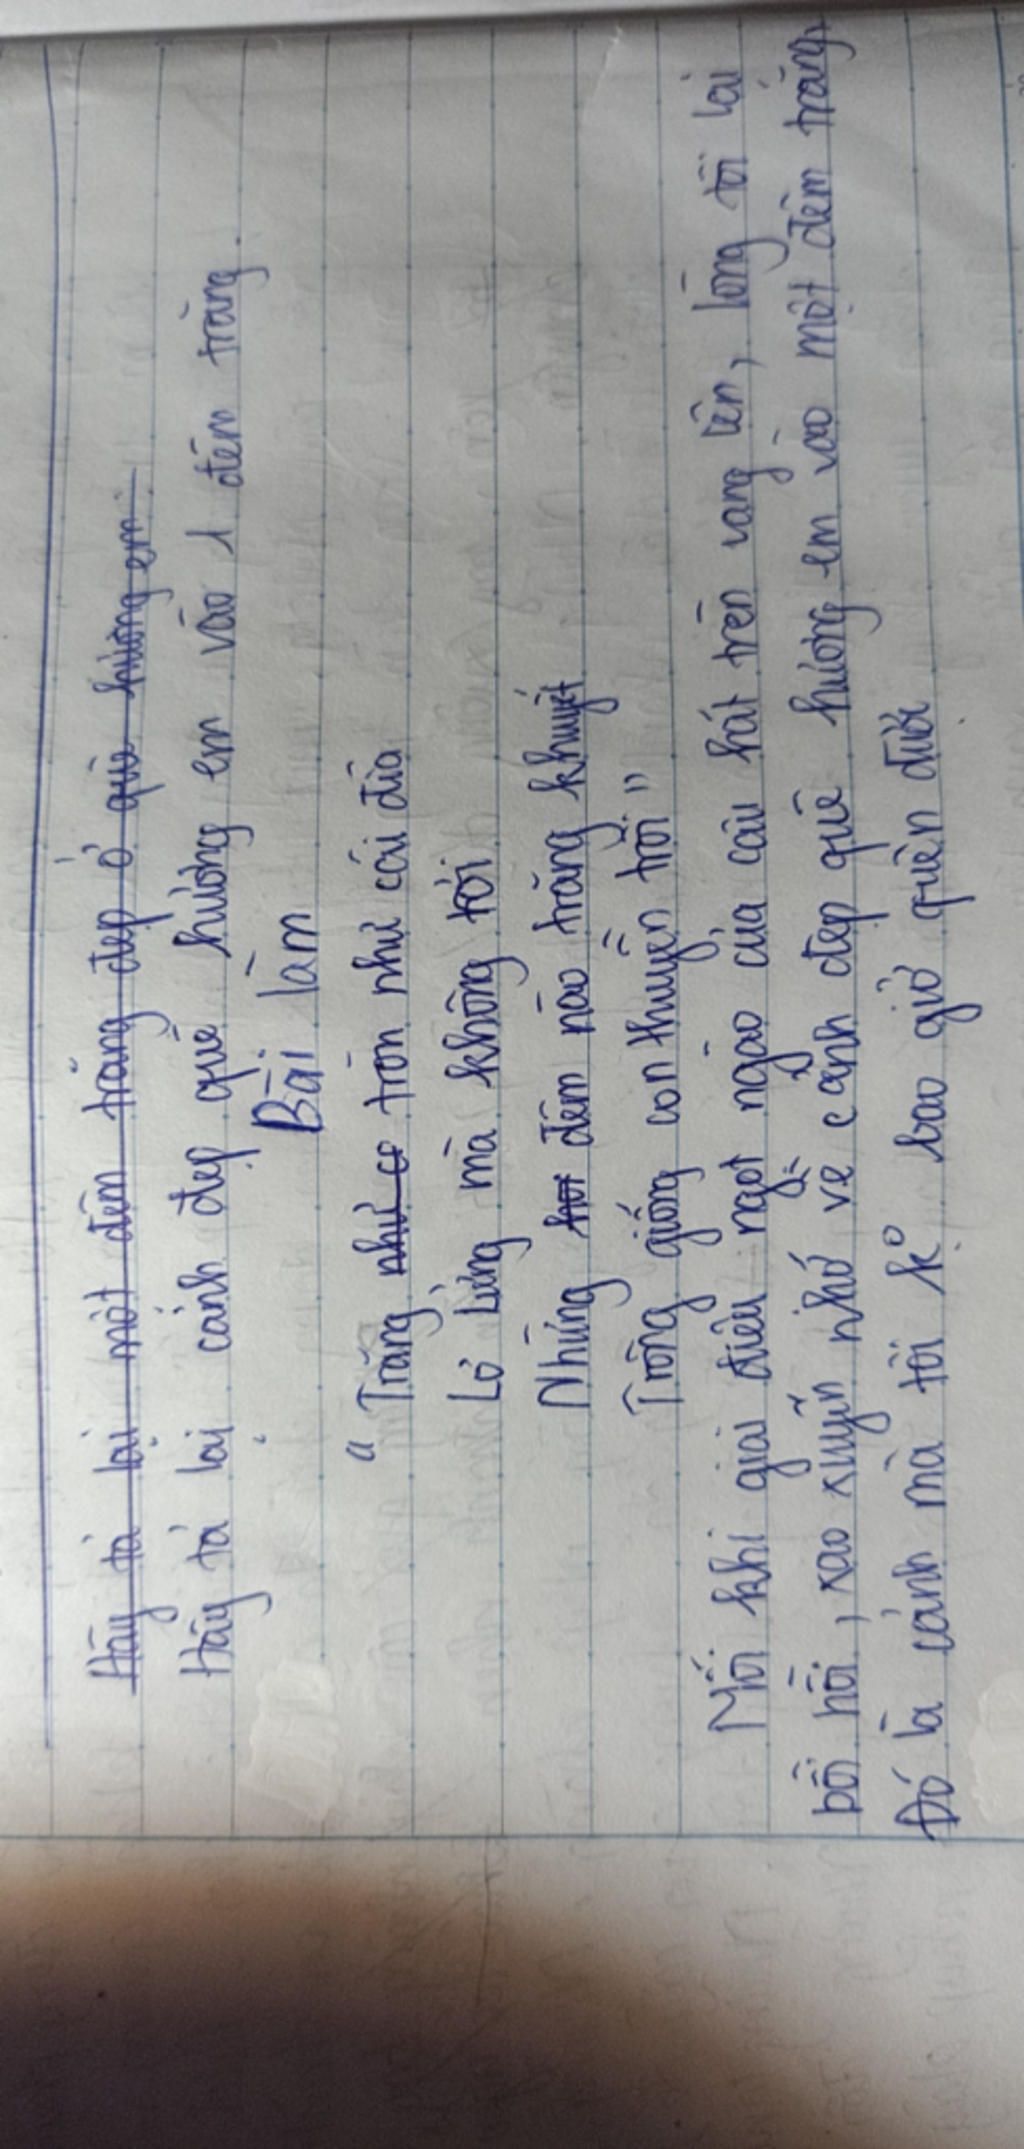 Hãy tả lại một đêm trăng đẹp ở quê hương em.
Hãy tả lại cảnh đẹp quê hương em vào 1 đêm trăng.
Bài làm
"Trăng như cơ tròn như cái đĩa
Lơ lửng mà không rơi
Những hơi đêm nào trăng khuyết
Trông giống con thuyền trôi"
Mỗi khi giai điệu ngọt ngào của câu hát trên vang lên, lòng tôi lại
bồi hồi, xao xuyến nhớ về cảnh đẹp quê hương em vào một đêm trăng.
Đó là cảnh mà tôi ko bao giờ quên được.